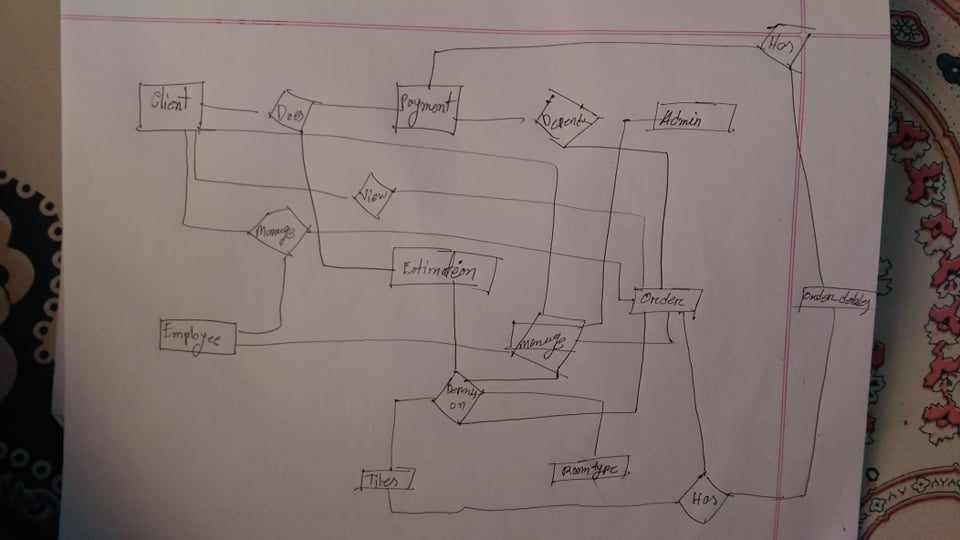 Has
Client
Does
Payment
Depends
Admin
View
Manage
Estimation
Order
Order details
Employee
Manage
Depends
on
Tiles
Roomtype
Has